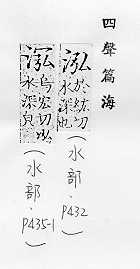 四聲篇海
泓 於紘切
水深也
（水部．P432）
烏宏切
水深皃
（水部．P435-1）